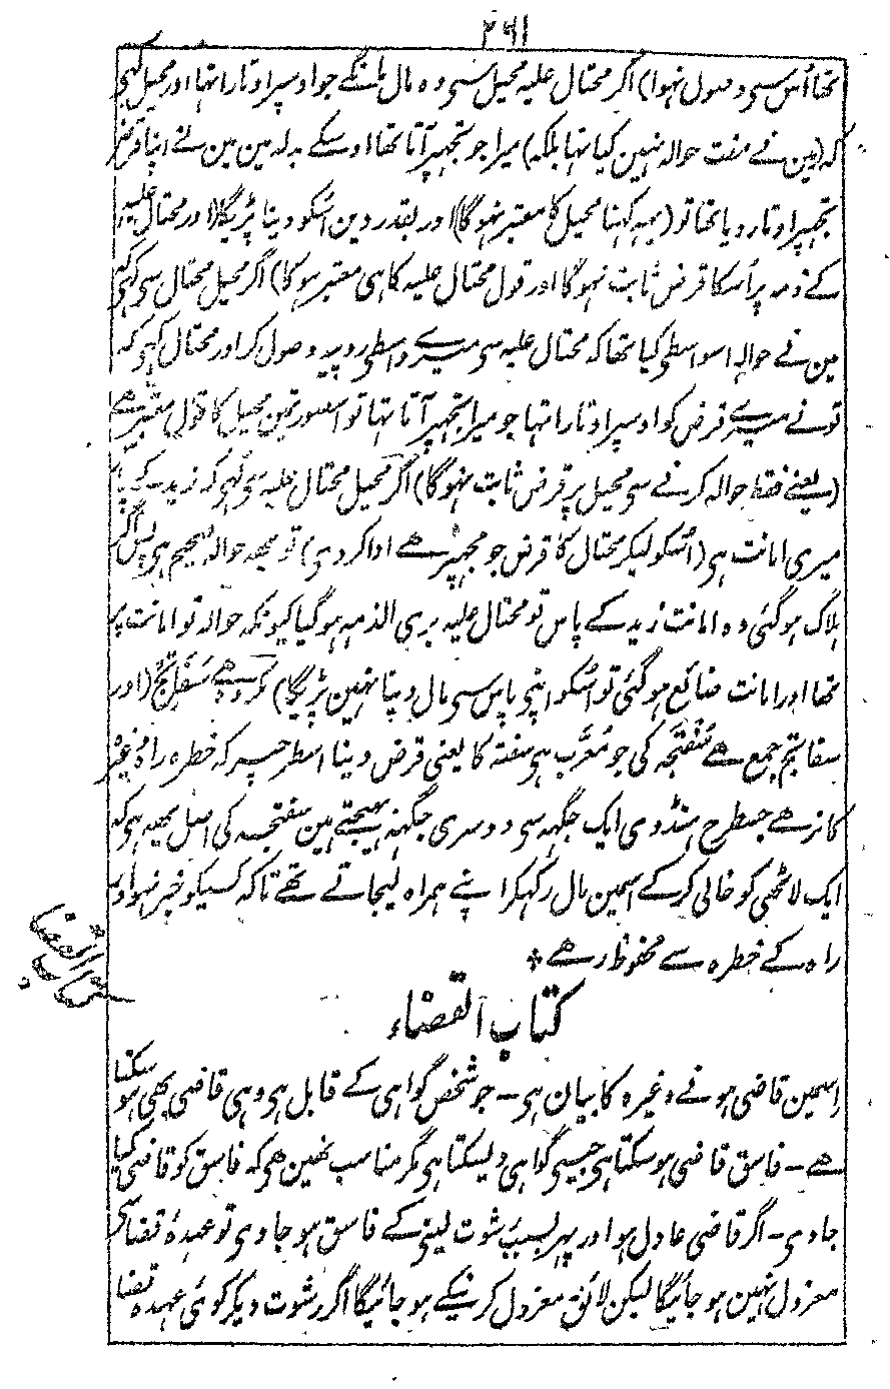 ۲۶۱
تھا اُس سی وصول نہوا) اگر محتال علیہ محیل سی وہ مال مانگے جو اوسپر اوتارا تہا اور محیل کہی
کہ (مین نے مفت حوالہ نہین کیا تہا بلکہ) میرا جو تجہپر آتا تھا اوسکے بدلہ مین مین نے اپنا قرض
تجہپر اوتار دیا تھا تو (یہہ کہنا محیل کا معتبر نہوگا) اور بقدر دین اُسکو دینا پڑیگا (اور محتال علیہ
کے ذمہ پر اُسکا قرض ثابت نہوگا اور قول محتال علیہ کا ہی معتبر ہوگا) اگر محیل محتال سی کہی کہ
مین نے حوالہ اسواسطی کیا تھا کہ محتال علیہ سی میرے واسطی روپیہ وصول کر اور محتال کہی کہ
تونے میرے قرض کو اوسپر اوتارا تہا جو میرا تجہپر آتا تہا تو اسصورتمین محیل کا قول معتبر ہے
(یعنے فقط حوالہ کرنے سی محیل پر قرض ثابت نہوگا) اگر محیل محتال علیہ سی کہی کہ زید کے پاس
میری امانت ہی (اُسکو لیکر محتال کا قرض جو مجہپر ہے ادا کر دی) تو یہہ حوالہ صحیح ہی پس اگر
ہلاک ہوگئی وہ امانت زید کے پاس تو محتال علیہ بری الذمہ ہوگیا کیونکہ حوالہ تو امانت پر
تھا اور امانت ضائع ہوگئی تو اُسکو اپنی پاس سی مال دینا نہین پڑیگا) مکروہ ہے سَفَاتِج (اور
سفاتج جمع ہے سُفْتَجَہ کی جو مُعَرَّب ہی سفتہ کا یعنی قرض دینا اسطرحپر کہ خطرہ راہ وغیرہ
کا نرہے جسطرح ہنڈوی ایک جگہہ سی دوسری جگہہ بہیجتے ہین سفتجہ کی اصل یہہ ہی کہ
ایک لاٹھی کو خالی کرکے اسمین مال رکہکر اپنے ہمراہ لیجاتے تھے تاکہ کسیکو خبر نہو اور
راہ کے خطرہ سے محفوظ رہے
کتاب القضاء
کتاب القضا
اسمین قاضی ہونے وغیرہ کا بیان ہی - جو شخص گواہی کے قابل ہی وہی قاضی بھی ہو سکتا
ہے - فاسق قاضی ہو سکتا ہی جیسی گواہی دیسکتا ہی مگر مناسب نہین ہی کہ فاسق کو قاضی کیا
جاوی - اگر قاضی عادل ہو اور پہر بسبب رشوت لینی کے فاسق ہو جاوی تو عہدۂ قضا سی
معزول نہین ہو جائیگا لیکن لائق معزول کرنیکے ہو جائیگا اگر رشوت دیکر کوئی عہدہ قضا